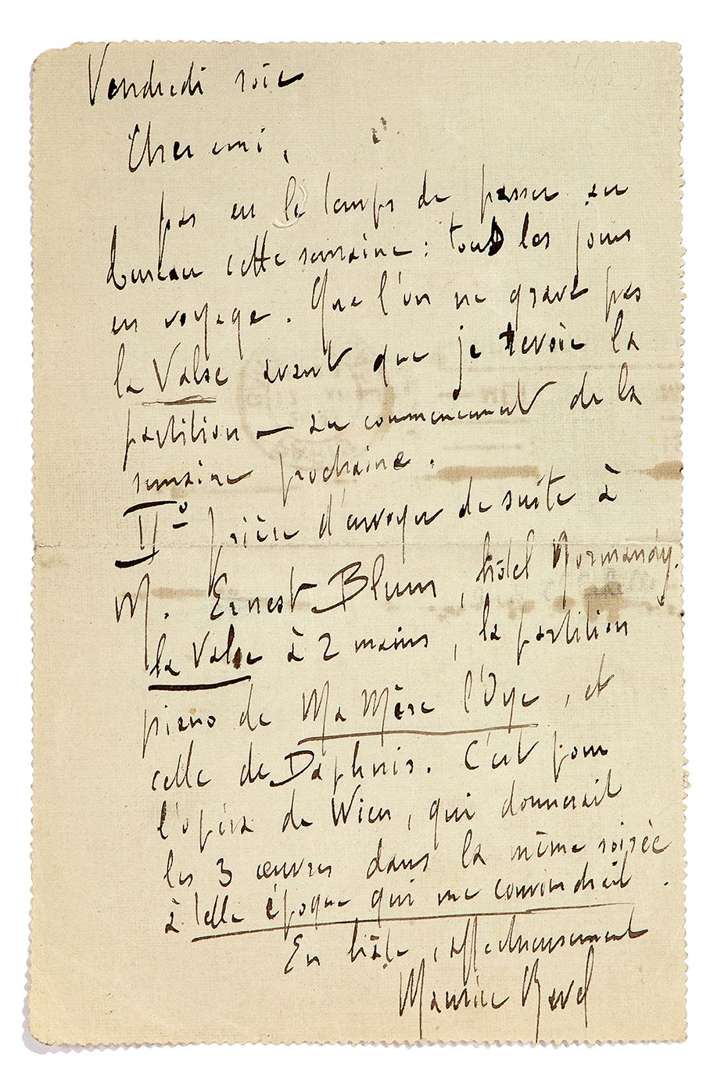 Vendredi soir
Cher ami,
pas eu le temps de passer au
bureau cette semaine : tous les jours
en voyage. Que l'on ne grave pas
la Valse avant que je revoie la
partition — au commencement de la
semaine prochaine.
IIº prière d'envoyer de suite à
M. Ernest Blum, hôtel Normandy.
la Valse à 2 mains, la partition
piano de Ma Mère l'Oye, et
celle de Daphnis. C'est pour
l'opéra de Wien, qui donnerait
les 3 œuvres dans la même soirée
à telle époque qui me conviendrait.
En hâte, affectueusement
Maurice Ravel